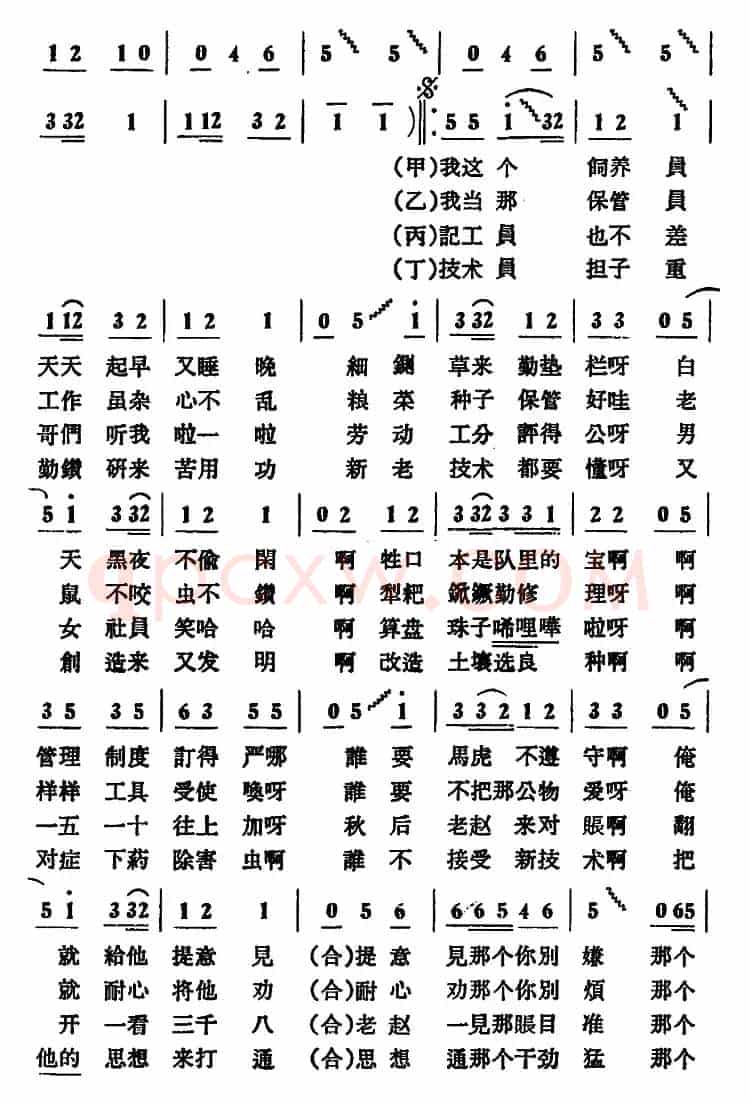 1 2 1 0 | 0 4 6 | 5 5 | 0 4 6 | 5 5 |
3 32 1 | 1 12 3 2 | 1 1 ) ‖: 5 5 i 32 | 1 2 1 |
(甲)我这个 飼养員
(乙)我当那 保管員
(丙)記工員 也不差
(丁)技术員 担子重
1 12 3 2 | 1 2 1 | 0 5 i | 3 32 1 2 | 3 3 0 5 |
天天起早又睡晚 細鍘草来勤垫栏呀白
工作虽杂心不乱 粮菜种子保管好哇老
哥們听我啦一啦 劳动工分評得公呀男
勤鑽研来苦用功 新老技术都要懂呀又
5 i 3 32 | 1 2 1 | 0 2 1 2 | 3 32 3 31 | 2 2 0 5 |
天黑夜不偷閑啊牲口本是队里的宝啊啊
鼠不咬虫不鑽啊犁耙鍁鐝勤修理呀啊
女社員笑哈哈啊算盘珠子唏哩嘩啦呀啊
創造来又发明啊改造土壤选良种啊啊
qpcxw.com
3 5 3 5 | 6 3 5 5 | 0 5 i | 3 3 2 1 2 | 3 3 0 5 |
管理制度訂得严哪 誰要馬虎不遵守啊俺
样样工具受使喚呀 誰要不把那公物爱呀俺
一五一十往上加呀 秋后老赵来对賬啊翻
对症下葯除害虫啊 誰不接受新技术啊把
5 i 3 32 | 1 2 1 | 0 5 6 | 6 6 5 4 6 | 5 0 65 |
就給他提意見 (合)提意見那个你別嫌那个
就耐心将他劝 (合)耐心劝那个你別煩那个
开一看三千八 (合)老赵一見那賬目准那个
他的思想来打通 (合)思想通那个干劲猛那个